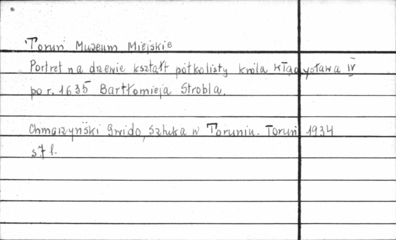 Toruń Muzeum Miejskie
Portret na drzewie kształt półkolisty króla Władysława IV
po r. 1635 Bartłomieja Strobla.
Chmarzyński Gwido, Sztuka w Toruniu. Toruń 1934
s 71.